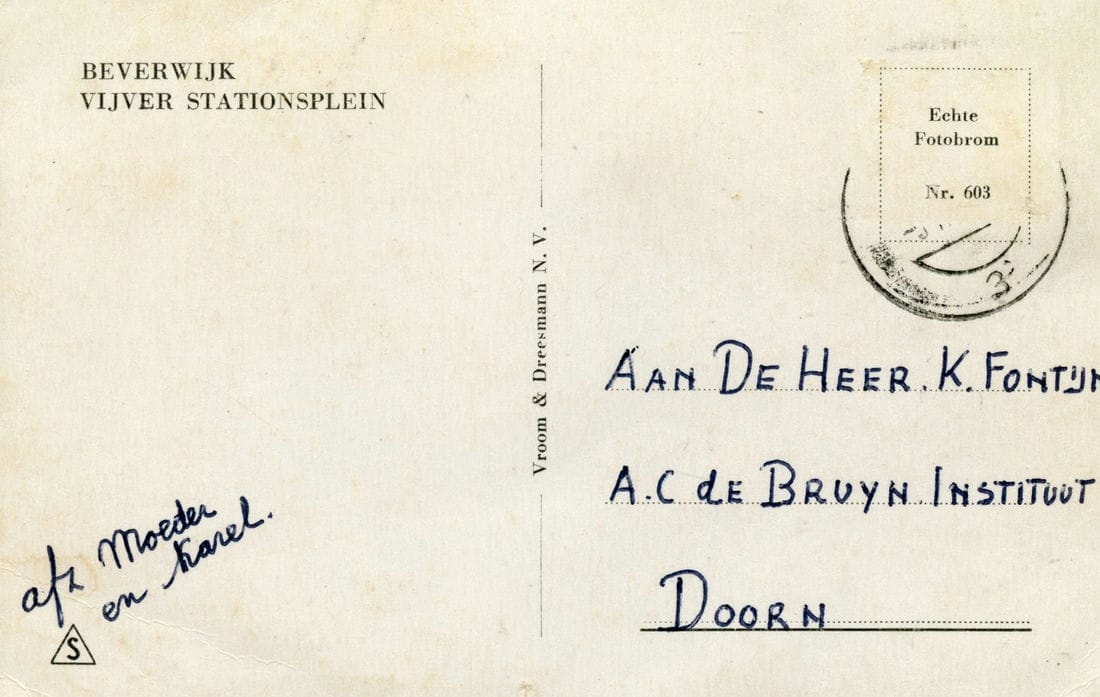 BEVERWIJK
VIJVER STATIONSPLEIN
Echte
Fotobrom
Nr. 603
Vroom & Dreesmann N. V.
AAN DE HEER. K. FONTIJN
A.C de BRUYN INSTITUUT
DOORN
afz Moeder
en Karel.
S